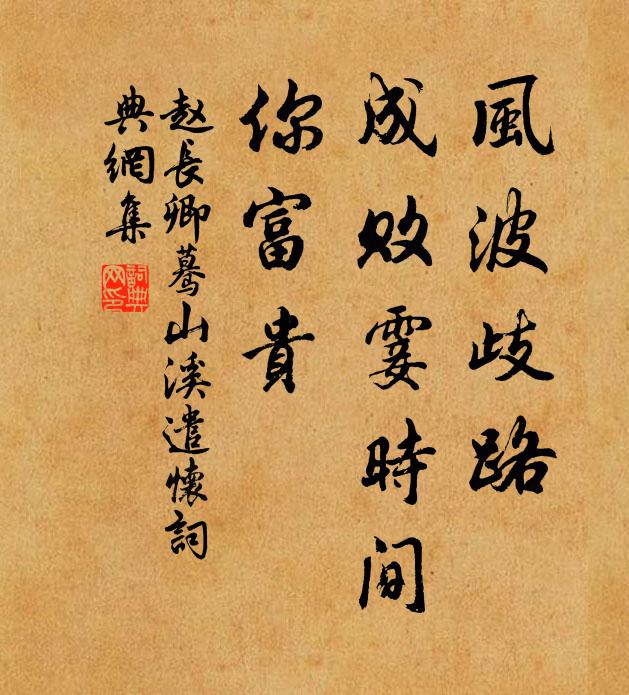 風波歧路
成敗霎時間
你富貴
赵長卿蓦山溪遣懷詞
典網集
詞典
网印